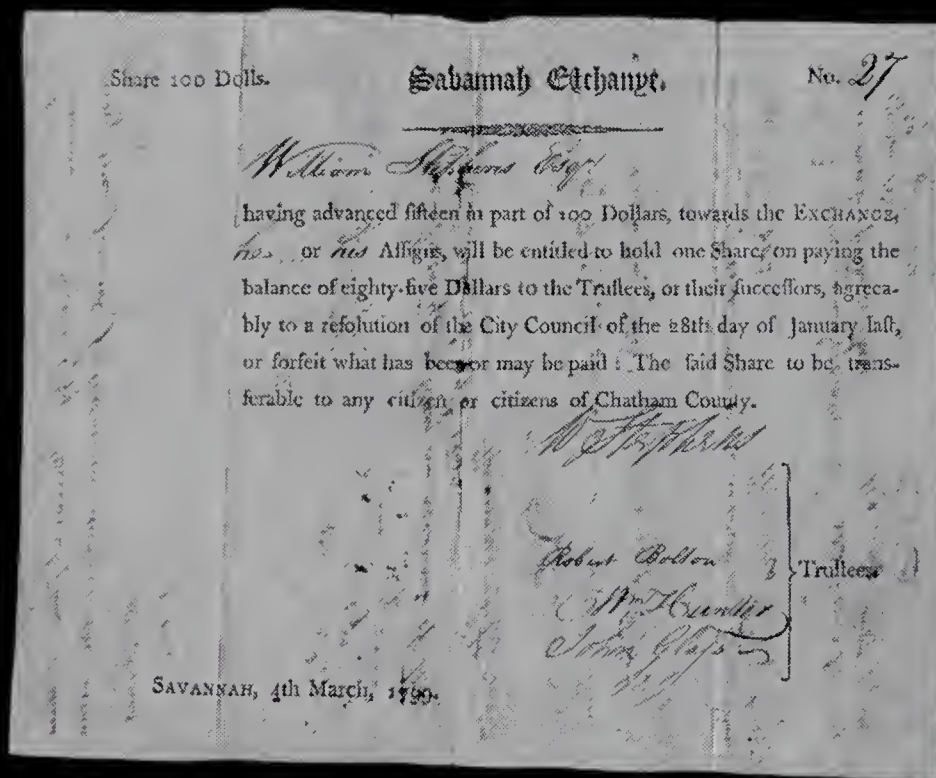 Share 100 Dolls. Savannah Exchange. No. 27
William Stephens Esqr
having advanced fifteen in part of 100 Dollars, towards the EXCHANGE,
he or his Aſſigns, will be entitled to hold one Share, on paying the
balance of eighty-five Dollars to the Truſtees, or their ſucceſſors, agreea-
bly to a reſolution of the City Council of the 28th day of January laſt,
or forfeit what has been or may be paid : The ſaid Share to be tranſ-
ferable to any citizen or citizens of Chatham County.
W Stephens
Robert Bolton
Wm Hunter
Truſtees
John Glaſs
SAVANNAH, 4th March, 1799.